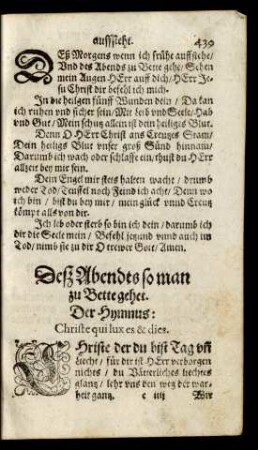 auffsteht. 439
DEß Morgens wenn ich frühe auffstehe/
Vnd des Abends zu Bette gehe/ Sehen
mein Augen HErr auff dich/ HErr Je-
su Christ dir befehl ich mich.
In die heilgen fünff Wunden dein/ Da kan
ich ruhen vnd sicher sein/ Mit leib vnd Seele/ Hab
vnd Gut/ Mein schutz allein ist dein heiliges Blut.
Denn O HErr Christ ans Creutzes Stam/
Dein heiligs Blut vnser groß Sünd hinnam/
Darumb ich wach oder schlaffe ein/ thust du HErr
allzeit bey mir sein.
Dein Engel mir stets halten wacht/ drumb
weder Tod/ Teuffel noch Feind ich acht/ Denn wo
ich bin/ bist du bey mir/ mein glück vnnd Creutz
kömpt alls von dir.
Ich leb oder sterb so bin ich dein/ darumb ich
dir die Seele mein/ Befehl jetzund vnnd auch im
Tod/ nimb sie zu dir O trewer Gott/ Amen.
Deß Abendts so man
zu Bette gehet.
Der Hymnus:
Christe qui lux es & dies.
CHriste der du bist Tag vñ
Liecht/ für dir ist HErr verborgen
nichtes/ du Vätterliches liechtes
glantz/ lehr vns den weg der war-
heit gantz. e iiij Wir